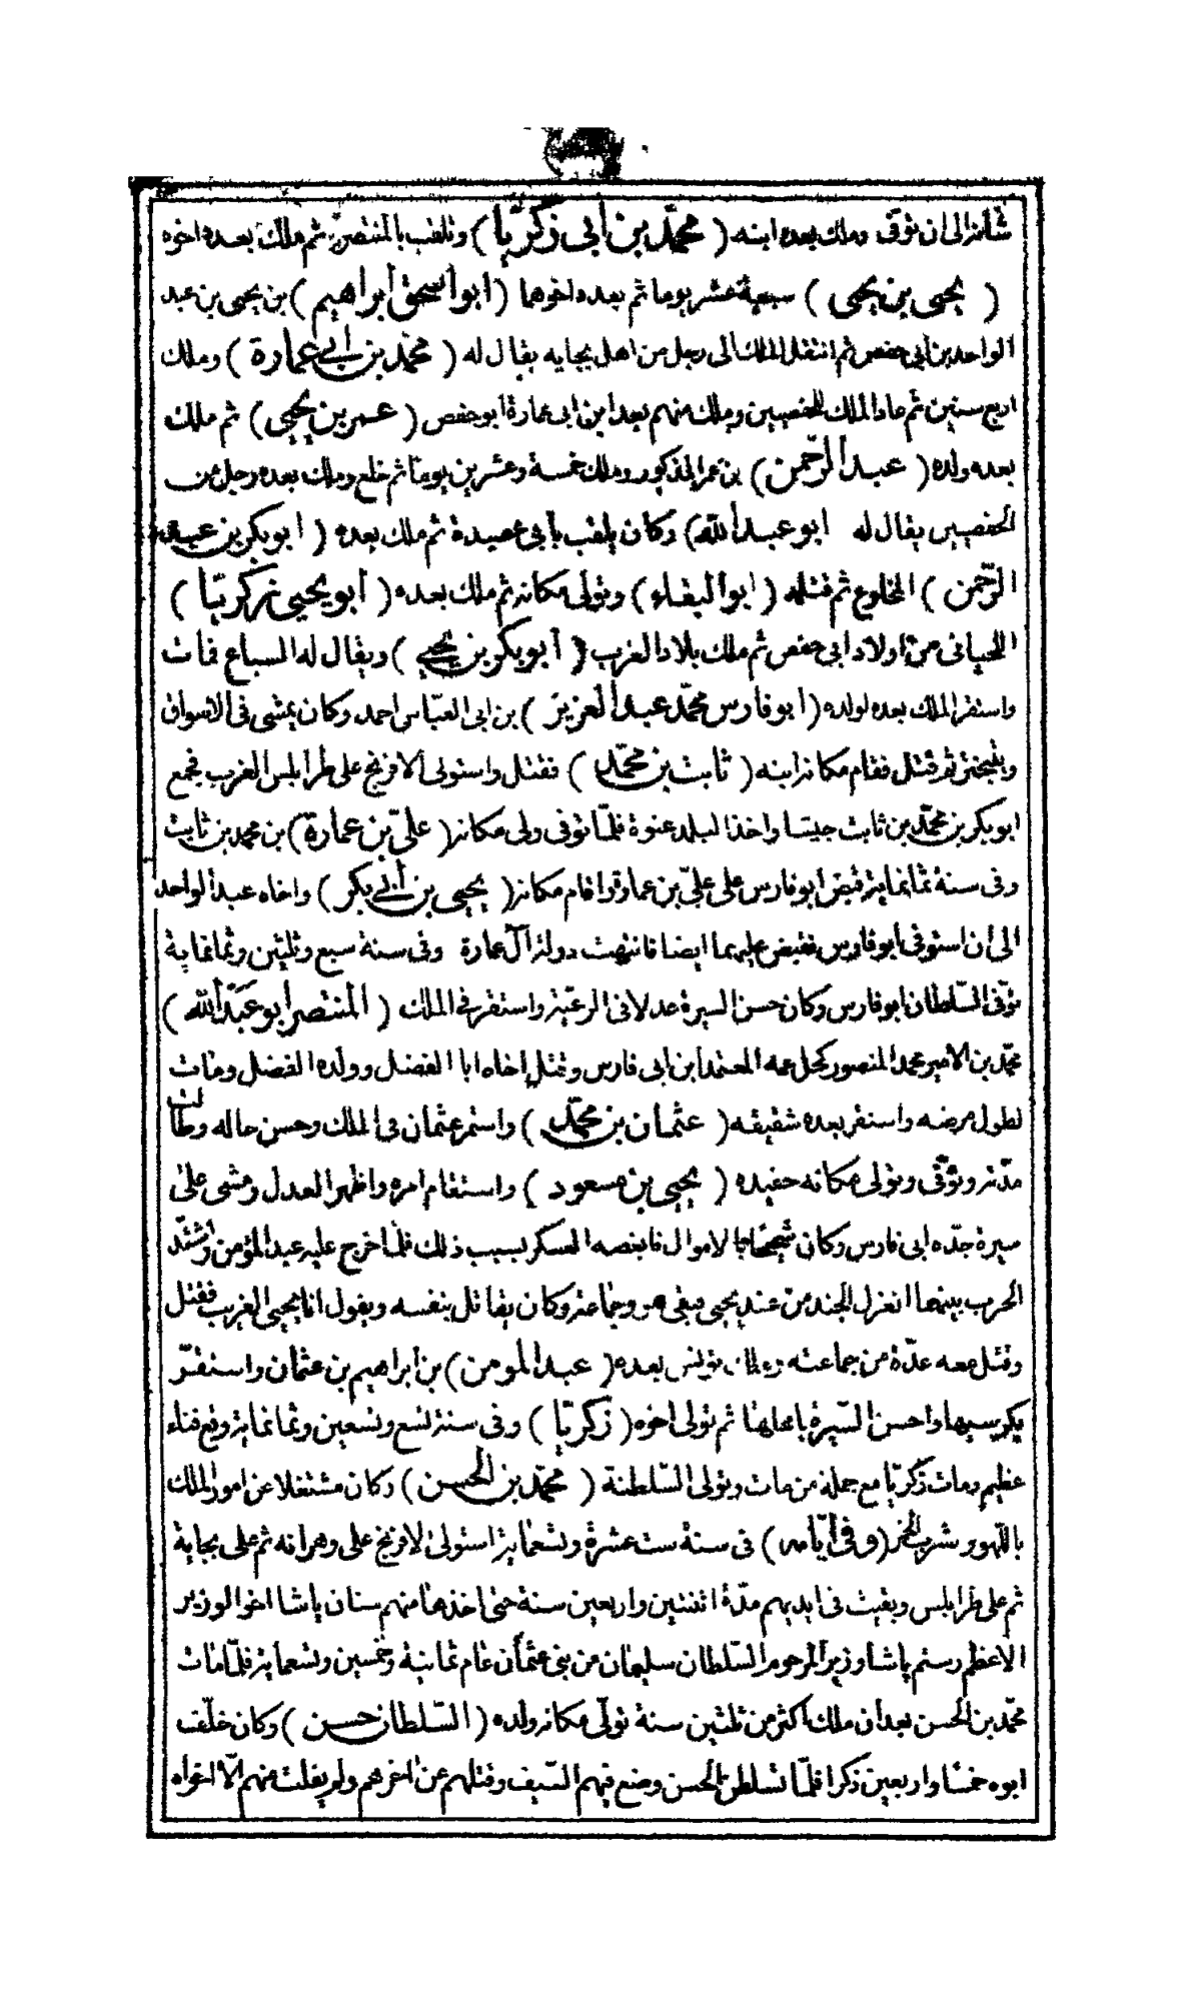 شانه الى ان توفى وملك بعده ابنه ( محمّد بن أبى زكريّا ) وتلقب بالمنتصر ثم ملك بعده اخوه
( يحيى بن يحيى ) سبعة عشر يوما ثم بعده اخوهما ( ابو اسحق ابراهيم ) بن يحيى بن عبد
الواحد بن ابى حفص ثم انتقل الملك الى رجل من اهل بجايه يقال له ( محمّد بن ابي عمارة ) وملك
اربع سنين ثم عاد الملك للحفصيين وملك منهم بعد ابن ابى عمارة ابو حفص ( عمر بن يحيى ) ثم ملك
بعده ولده ( عبد الرّحمن ) بن عمر المذكور وملك خمسة وعشرين يوما ثم خلع وملك بعده رجل من
الحفصيين يقال له ابو عبد الله ) وكان يلقب بأبى عصيدة ثم ملك بعده ( ابو بكر بن عبد
الرّحمن ) المخلوع ثم قتله ( ابو البقاء ) وتولى مكانه ثم ملك بعده ( أبو يحيى زكريّا )
اللحيانى من اولاد ابى حفص ثم ملك بلاد الغرب ( أبو بكر بن يحيي ) ويقال له السباع فمات
واستقر الملك بعده لولده ( ابو فارس محمّد عبد العزيز ) بن ابى العبّاس احمد وكان يمشى فى الاسواق
قتل فقام مكانه ابنه ( ثابت بن محمّد ) فقتل واستولى الافرنج على طرابلس الغرب فجمع
ابو بكر بن محمّد بن ثابت جيشا واخذ البلد عنوة فلمّا توفى ولى مكانه ( علىّ بن عمارة ) بن محمد بن ثابت
وفى سنة ثمانمايه قبض ابو فارس على علىّ بن عمارة واقام مكانه ( يحيى بن أبي بكر ) واخاه عبد الواحد
الى ان استوفى ابو فارس فقبض عليهما ايضا فانتهت دولة آل عمارة وفى سنة سبع وثلثين وثمانماية
توّفى السّلطان ابو فارس وكان حسن السيرة عدلا فى الرعيّة واستقر فى الملك ( المنتصر أبو عبد الله )
محمّد بن الامير محمد المنصور كحل عمه المعتمد ابن ابى فارس وقتل اخاه ابا الفضل وولده الفضل ومات
لطول مرضه واستقر بعده شقيقه ( عثمان بن محمّد ) واستمر عثمان فى الملك وحسن حاله وطالت
مدّته وتوّفى وتولى مكانه حفيده ( يحيى بن مسعود ) واستقام امره واظهر العدل ومشى على
سيرة جدّه ابى فارس وكان شحيحا بالاموال فابغضه العسكر بسبب ذلك فلمّا خرج عليه عبد المؤمن واشتدّ
الحرب بينهما انعزل الجند من عند يحيى وبقى هو وجماعته وكان يقاتل بنفسه ويقول انا يحيى الغريب فقتل
وقتل معه عدّة من جماعته وملك تونس بعده ( عبد المومن ) بن ابراهيم بن عثمان واستقرّ
بكرسيها واحسن السّيرة باهلها ثم تولى اخوه ( زكريّا ) وفى سنة تسع وتسعين وثمانماية وقع فناء
عظيم ومات زكريّا مع جملة من مات وتولى السّلطنة ( محمّد بن الحسن ) وكان مشتغلا عن امور الملك
باللّهو وشرب الخمر ( وفى ايّامه ) فى سنة ست عشرة وتسعمايه استولى لافرنج على وهرانه ثم على بجاية
ثم على طرابلس وبقيت فى ايديهم مدّة اثنتين واربعين سنة حتى اخذها منهم سنان پاشا اخو الوزير
الاعظم رستم پاشا وزير المرحوم السّلطان سليمان من بنى عثمان عام ثمانية وخمسين وتسعمايه فلمّا مات
محمّد بن الحسن بعد ان ملك اكثر من ثلثين سنة تولّى مكانه ولده ( السّلطان حسن ) وكان خلّف
ابوه خمسا واربعين ذكرا فلمّا تسلطن الحسن وضع فيهم السّيف وقتلهم عن اخرهم ولم يفلت منهم الّا اخواه